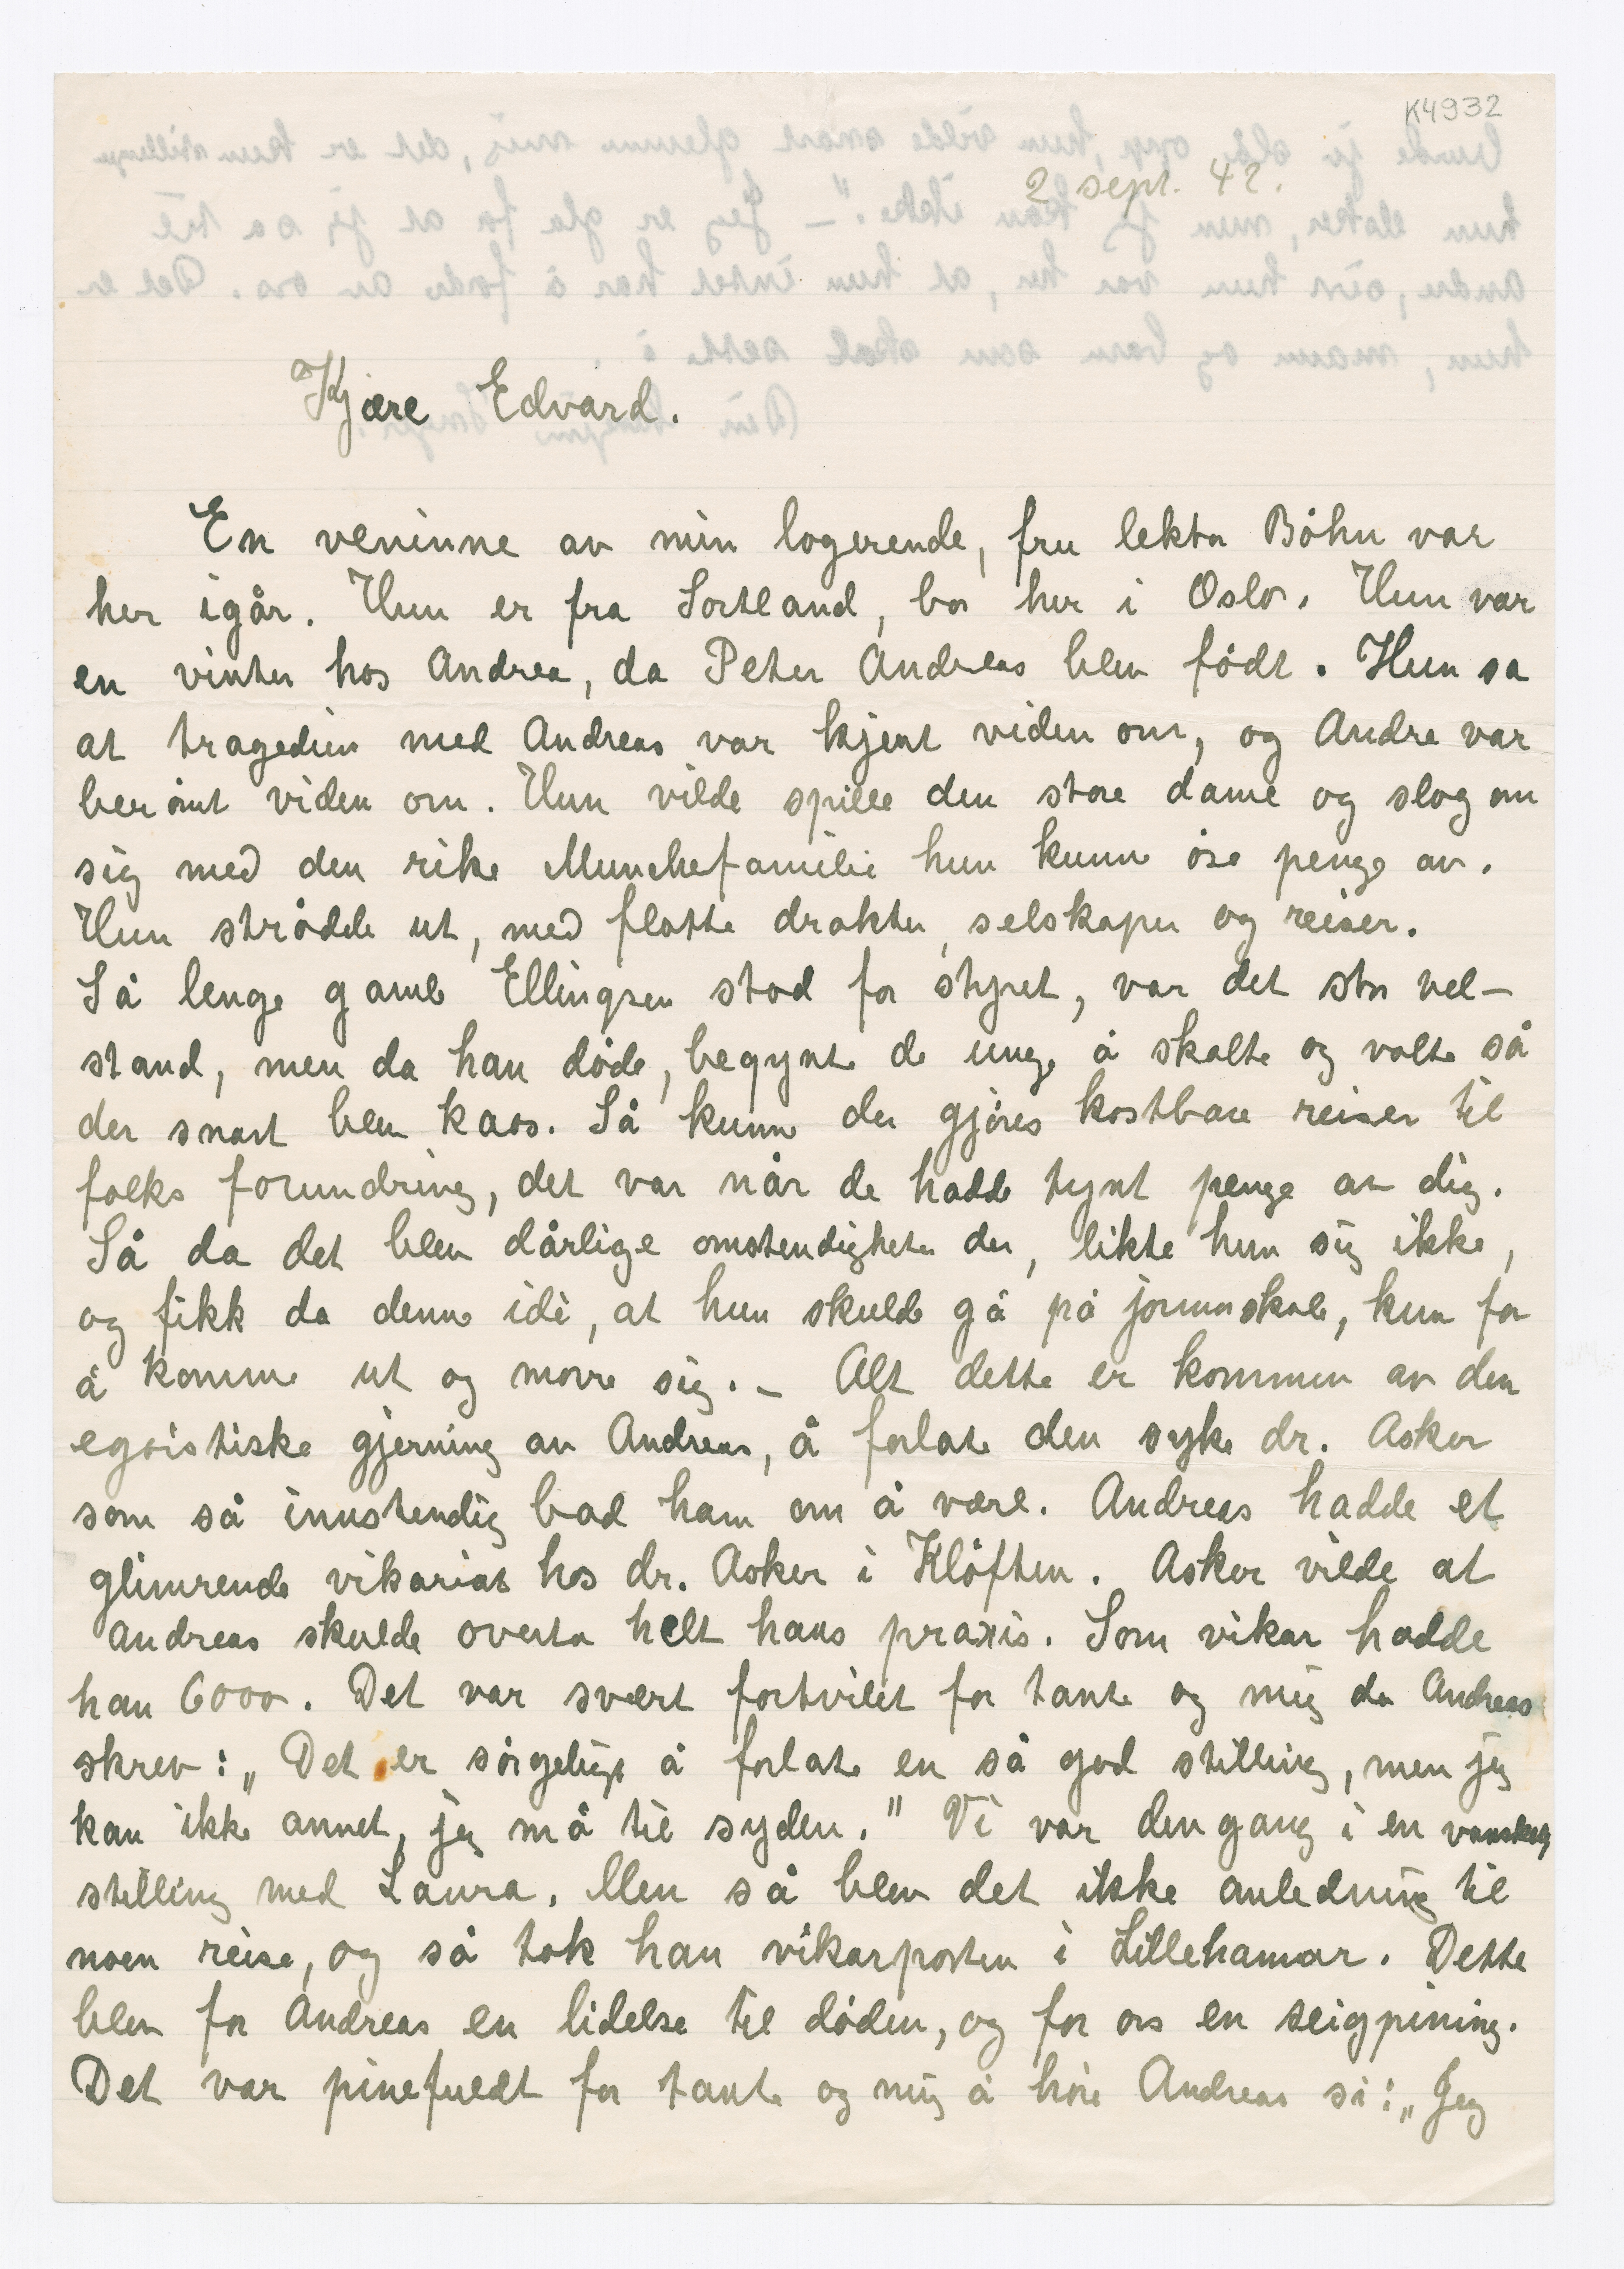 K4932
2 sept. 42.
Kjære Edvard.
En veninne av min logerende, fru lektor Böhn var
her igår. Hun er fra Sortland, bor her i Oslo. Hun var
en vinter hos Andrea, da Peter Andreas blev födt. Hun sa
at tragedien med Andreas var kjent viden om, og Andre var
berömt viden om. Hun vilde spille den store dame og slog om
sig med den rike Munchefamilie hun kunne öse penge av.
Hun strödde ut, med flotte drakter, selskaper og reiser.
Så lenge gamle Ellingsen stod for styret, var det stor vel-
stand, men da han döde, begynte de unge å skalte og valte så
der snart blev kaos. Så kunne der gjöres kostbare reiser til
folks forundring, det var når de hadde tynt penge av dig.
Så da det blev dårlige omstendigheter der, likte hun sig ikke,
og fikk da denne idè, at hun skulde gå på jormorskole, kun for
å komme ut og more sig. – Alt dette er kommen av den
egoistiske gjerning av Andreas, å forlate den syke dr. Asker
som så innstendig bad ham om å være. Andreas hadde et
glimrende vikariat hos dr. Asker i Klöften. Asker vilde at
Andreas skulde overta helt hans praxis. Som vikar hadde
han 6000. Det var svært fortvilet for tante og mig da Andreas
skrev: „Det er sörgelige å forlate en så god stilling, men jeg
kan ikke annet, jeg må til syden." Vi var dengang i en vanskelig
stilling med Laura. Men så blev det ikke anledning til
noen reise, og så tok han vikarposten i Lillehamar. Dette
blev for Andreas en lidelse til döden, og for os en seigpining.
Det var pinefuldt for tante og mig å höre Andreas si: „Jeg